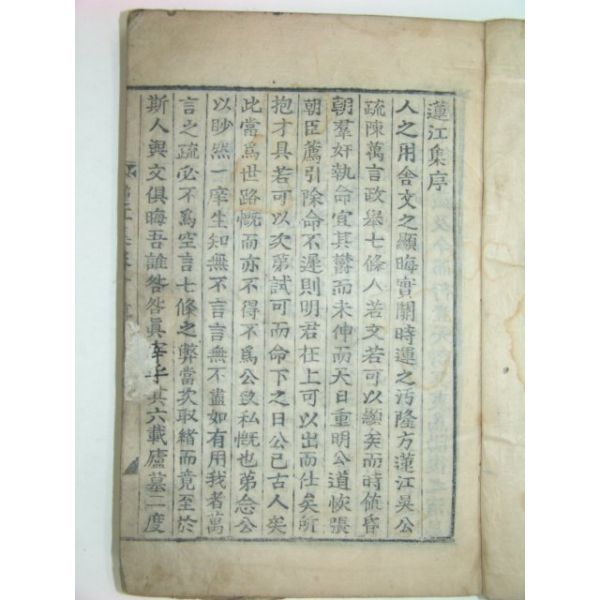 蓮江集序
人之用舍文之顯晦實關時運之汚隆方蓮江吳公
疏陳萬言政舉七條人若文若可以顯矣而時値昏
朝羣奸執命宜其欝而未伸而天日重明公道恢張
朝臣薦引除命不遲則明君在上可以出而仕矣所
抱才具若可以次第試可而命下之日公已古人矣
此當爲世路慨而亦不得不爲公致私慨也第念公
以眇然一庠生知無不言言無不盡如有用我者萬
言之疏必不爲空言七條之弊當次取緖而竟至於
斯人與文俱晦吾誰咎咎眞宰乎其六載廬墓二度